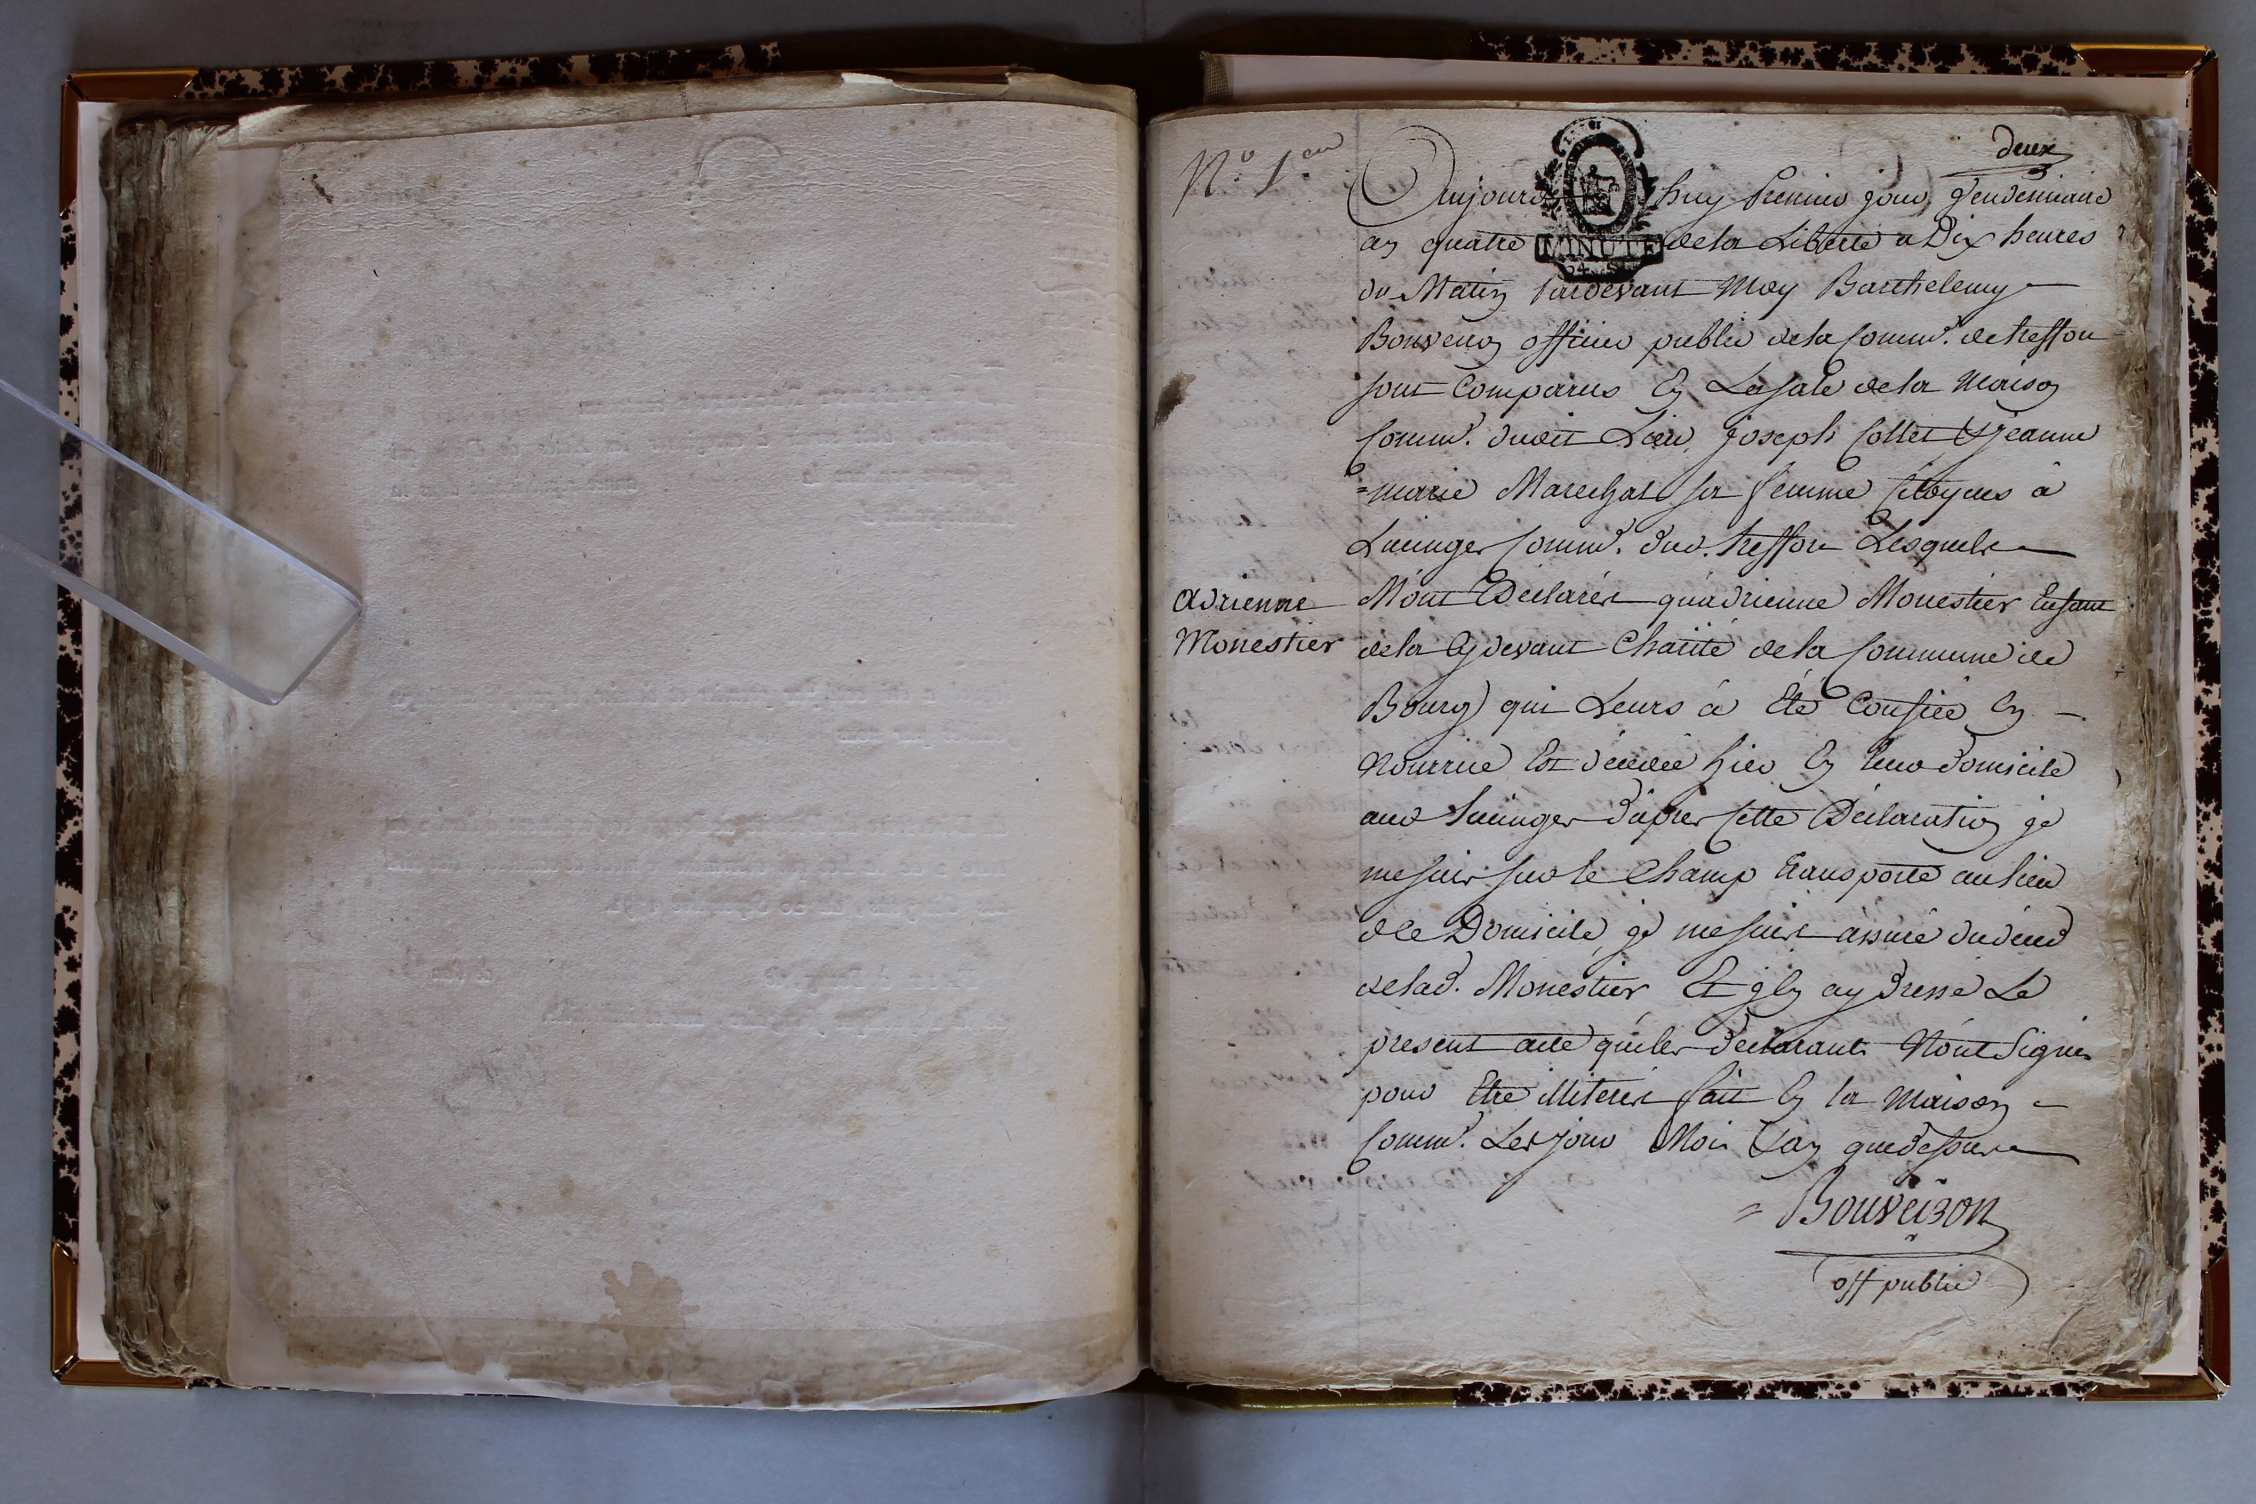 deux
N.º 1.er
Aujourd'huy Premier jour Vendemiaire
an quatre MINUTE de la Liberté a Dix heures
du Matin Pardevant Moy Barthelemy
Bouveron officier public de la Commu.té de treffort
sont Comparus En La sale de la Maison
Commu.e dudit Lieu, joseph Collet & jeanne
=marie Marechal sa femme Citoyens à
Lucinges Commu.é dud. treffort Lesquels
Adrienne
Monestier
M'ont Déclarés qu'adrienne Monestier Enfant
de la Cydevant Charité de la Commune de
Bourg) qui Leurs à Eté Confiée En
Nourrice Est décédée hier En leur Domicile
aud Lucinges D'apres Cette Déclaration je
me suis sur le Champ transporté au lieu
de Ce Domicile, je me suis assuré du décéd
de lad. Monestier Et j'En ay Dressé Le
present acte que les Déclarants N'ont Signés
pour Etre illiterés fait En la Maison
Commu.e Les jour Mois & an que dessus
= Bouveizon
off public